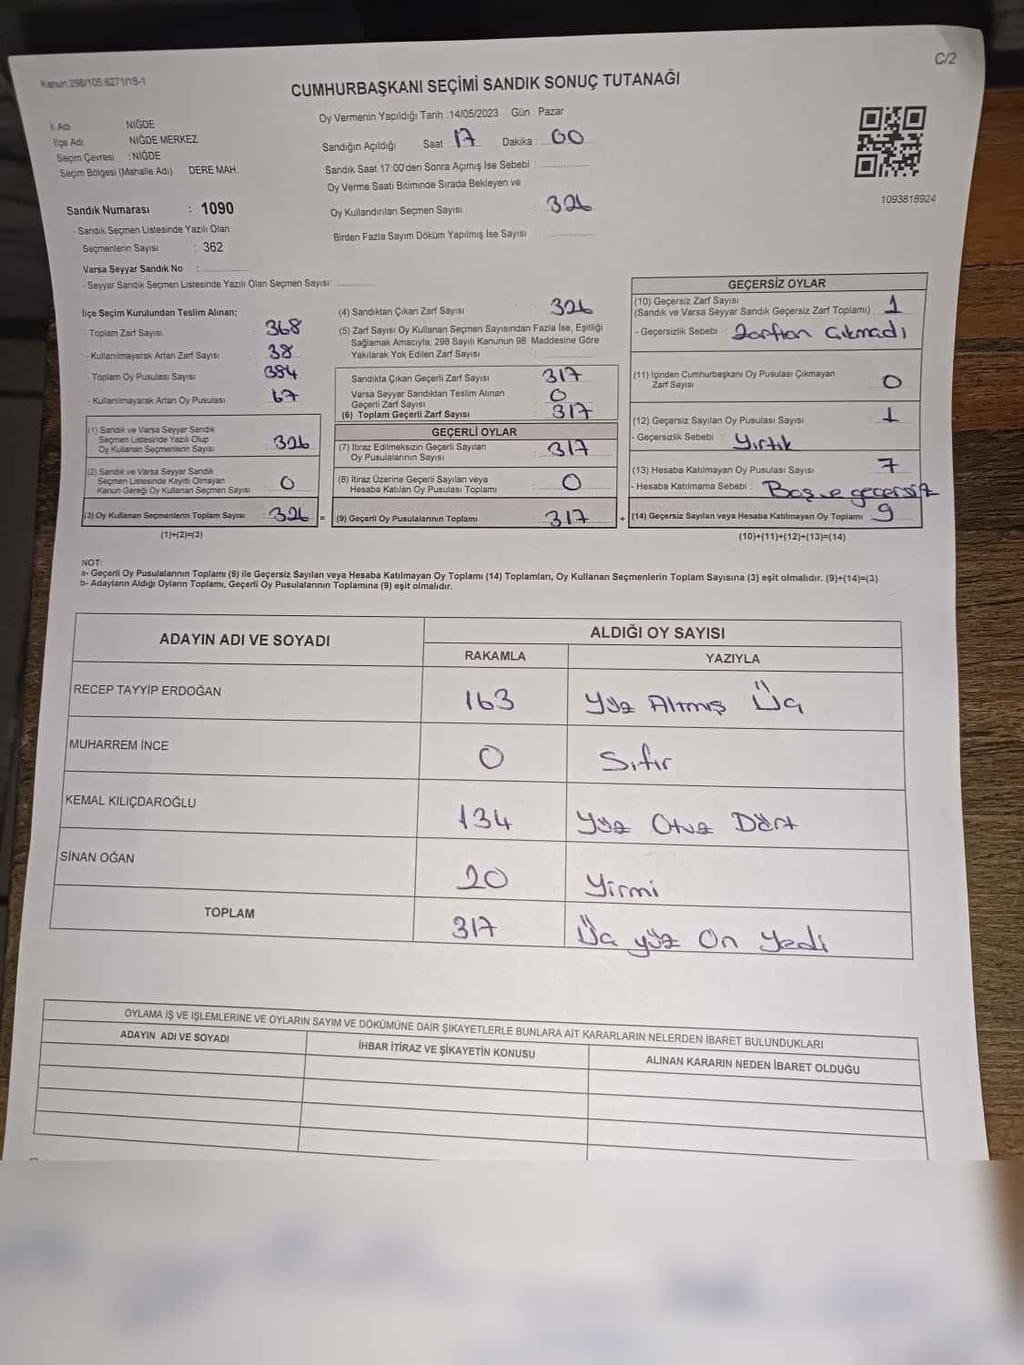 Kanun 298/105 6271/18-1
C/2
CUMHURBAŞKANI SEÇİMİ SANDIK SONUÇ TUTANAĞI
İl Adı : NİĞDE
İlçe Adı NİĞDE MERKEZ
Seçim Çevresi : NİĞDE
Seçim Bölgesi (Mahalle Adı) : DERE MAH.
Sandık Numarası : 1090
- Sandık Seçmen Listesinde Yazılı Olan
Seçmenlerin Sayısı : 362
Varsa Seyyar Sandık No :
- Seyyar Sandık Seçmen Listesinde Yazılı Olan Seçmen Sayısı:
Oy Vermenin Yapıldığı Tarih :14/05/2023 Gün : Pazar
Sandığın Açıldığı Saat 17 Dakika : 00
Sandık Saat 17:00'den Sonra Açımış İse Sebebi :
Oy Verme Saati Bitiminde Sırada Bekleyen ve
Oy Kullandırılan Seçmen Sayısı : 326
Birden Fazla Sayım Döküm Yapılmış İse Sayısı
1093818924
İlçe Seçim Kurulundan Teslim Alınan;
- Toplam Zarf Sayısı : 368
- Kullanılmayarak Artan Zarf Sayısı : 38
- Toplam Oy Pusulası Sayısı : 384
- Kullanılmayarak Artan Oy Pusulası : 67
(1) Sandık ve Varsa Seyyar Sandık
Seçmen Listesinde Yazılı Olup
Oy Kullanan Seçmenlerin Sayısı : 326
(2) Sandık ve Varsa Seyyar Sandık
Seçmen Listesinde Kayıtlı Olmayan
Kanun Gereği Oy Kullanan Seçmen Sayısı : 0
(3) Oy Kullanan Seçmenlerin Toplam Sayısı : 326 =
(1)+(2)=(3)
(4) Sandıktan Çıkan Zarf Sayısı : 326
(5) Zarf Sayısı Oy Kullanan Seçmen Sayısından Fazla İse, Eşitliği
Sağlamak Amacıyla; 298 Sayılı Kanunun 98. Maddesine Göre
Yakılarak Yok Edilen Zarf Sayısı :
Sandıkta Çıkan Geçerli Zarf Sayısı : 317
Varsa Seyyar Sandıktan Teslim Alınan
Geçerli Zarf Sayısı : 0
(6) Toplam Geçerli Zarf Sayısı : 317
GEÇERLİ OYLAR
(7) İtiraz Edilmeksizin Geçerli Sayılan
Oy Pusulalarının Sayısı : 317
(8) İtiraz Üzerine Geçerli Sayılan veya
Hesaba Katılan Oy Pusulası Toplamı : 0
(9) Geçerli Oy Pusulalarının Toplamı : 317 +
GEÇERSİZ OYLAR
(10) Geçersiz Zarf Sayısı
(Sandık ve Varsa Seyyar Sandık Geçersiz Zarf Toplamı) : 1
- Geçersizlik Sebebi : Zarftan Çıkmadı
(11) İçinden Cumhurbaşkanı Oy Pusulası Çıkmayan
Zarf Sayısı : 0
(12) Geçersiz Sayılan Oy Pusulası Sayısı : 1
- Geçersizlik Sebebi : Yırtık
(13) Hesaba Katılmayan Oy Pusulası Sayısı : 7
- Hesaba Katılmama Sebebi : Boş ve geçersiz
(14) Geçersiz Sayılan veya Hesaba Katılmayan Oy Toplamı : 9
(10)+(11)+(12)+(13)=(14)
NOT:
a- Geçerli Oy Pusulalarının Toplamı (9) ile Geçersiz Sayılan veya Hesaba Katılmayan Oy Toplamı (14) Toplamları, Oy Kullanan Seçmenlerin Toplam Sayısına (3) eşit olmalıdır. (9)+(14)=(3)
b- Adayların Aldığı Oyların Toplamı, Geçerli Oy Pusulalarının Toplamına (9) eşit olmalıdır.
ADAYIN ADI VE SOYADI ALDIĞI OY SAYISI
RAKAMLA YAZIYLA
RECEP TAYYİP ERDOĞAN 163 Yüz Altmış Üç
MUHARREM İNCE 0 Sıfır
KEMAL KILIÇDAROĞLU 134 Yüz Otuz Dört
SİNAN OĞAN 20 Yirmi
TOPLAM 317 Üç yüz On Yedi
OYLAMA İŞ VE İŞLEMLERİNE VE OYLARIN SAYIM VE DÖKÜMÜNE DAİR ŞİKAYETLERLE BUNLARA AİT KARARLARIN NELERDEN İBARET BULUNDUKLARI
ADAYIN ADI VE SOYADI İHBAR İTİRAZ VE ŞİKAYETİN KONUSU ALINAN KARARIN NEDEN İBARET OLDUĞU